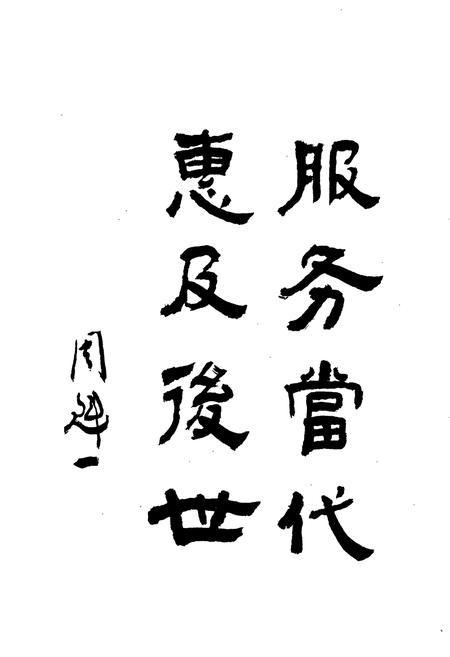 服务當代
惠及後世
周一